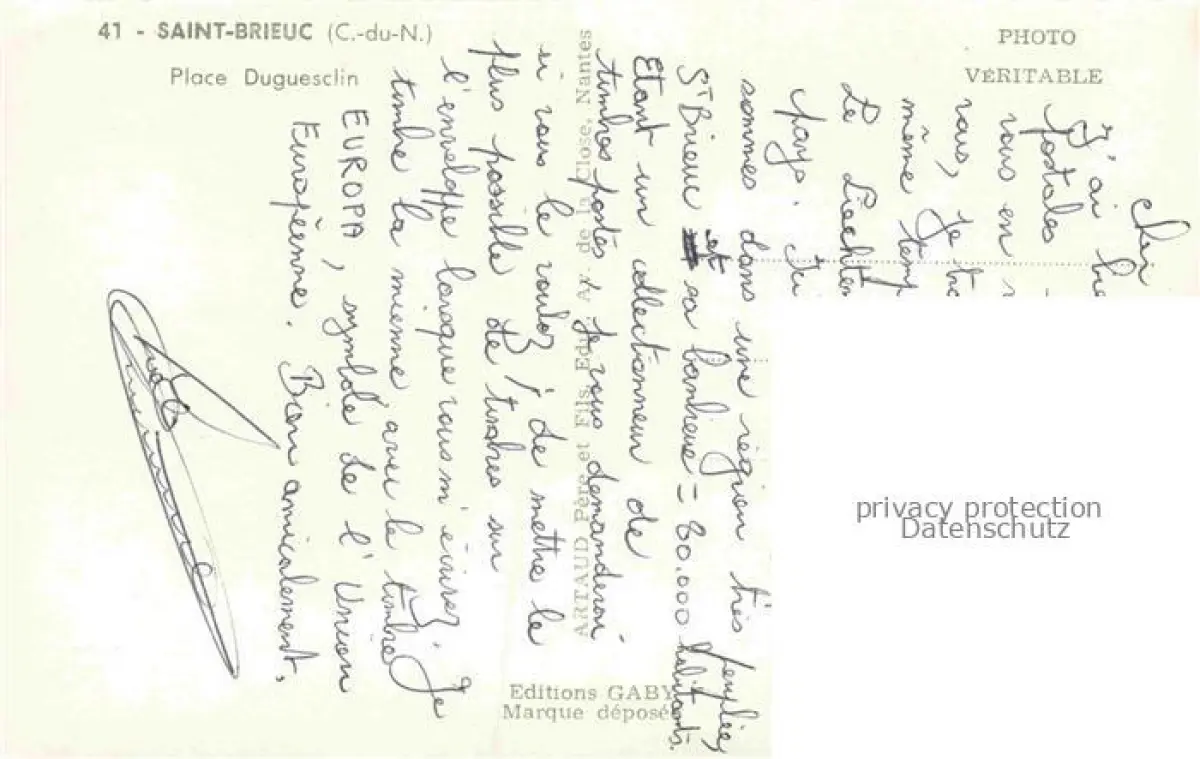 41 - SAINT-BRIEUC (C.-du-N.)
Place Duguesclin
PHOTO
VÉRITABLE
ARTAUD Père et Fils, Edit., Av. de la Close, Nantes
Editions GABY
Marque déposée
Cher
J'ai
postales
vous en
vous, je
même temp
Le Liechten
pays.
sommes dans une région très peuplée,
St Brieuc et sa banlieue = 80.000 habitants.
Etant un collectionneur de
timbres postes, je vous demanderai
si vous le voulez, de mettre le
plus possible de timbres sur
l'enveloppe lorsque vous m'écrirez. Je
timbre la mienne avec le timbre
EUROPA, symbole de l'Union
Européenne. Bien amicalement.
privacy protection
Datenschutz